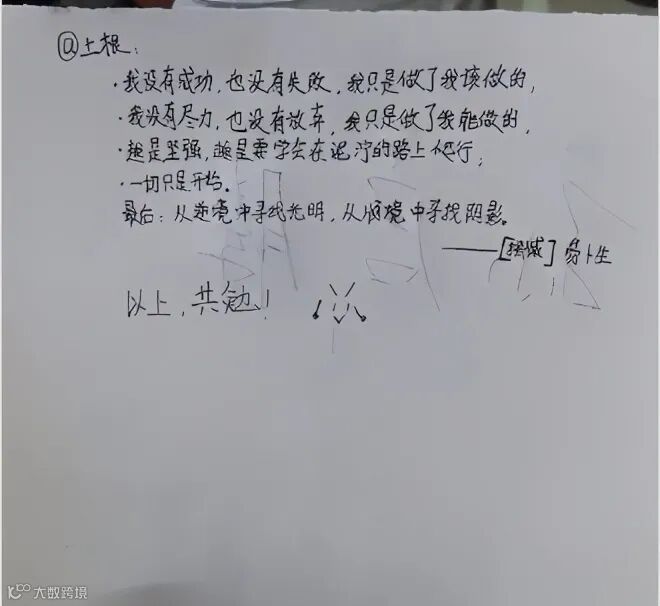 @土根：
·我没有成功，也没有失败，我只是做了我该做的，
·我没有尽力，也没有放弃，我只是做了我能做的，
·越是坚强，越是要学会在泥泞的路上爬行；
·一切只是开始。
最后：从逆境中寻找光明，从顺境中寻找阴影。
——[挪威] 易卜生
以上，共勉！
大数跨境